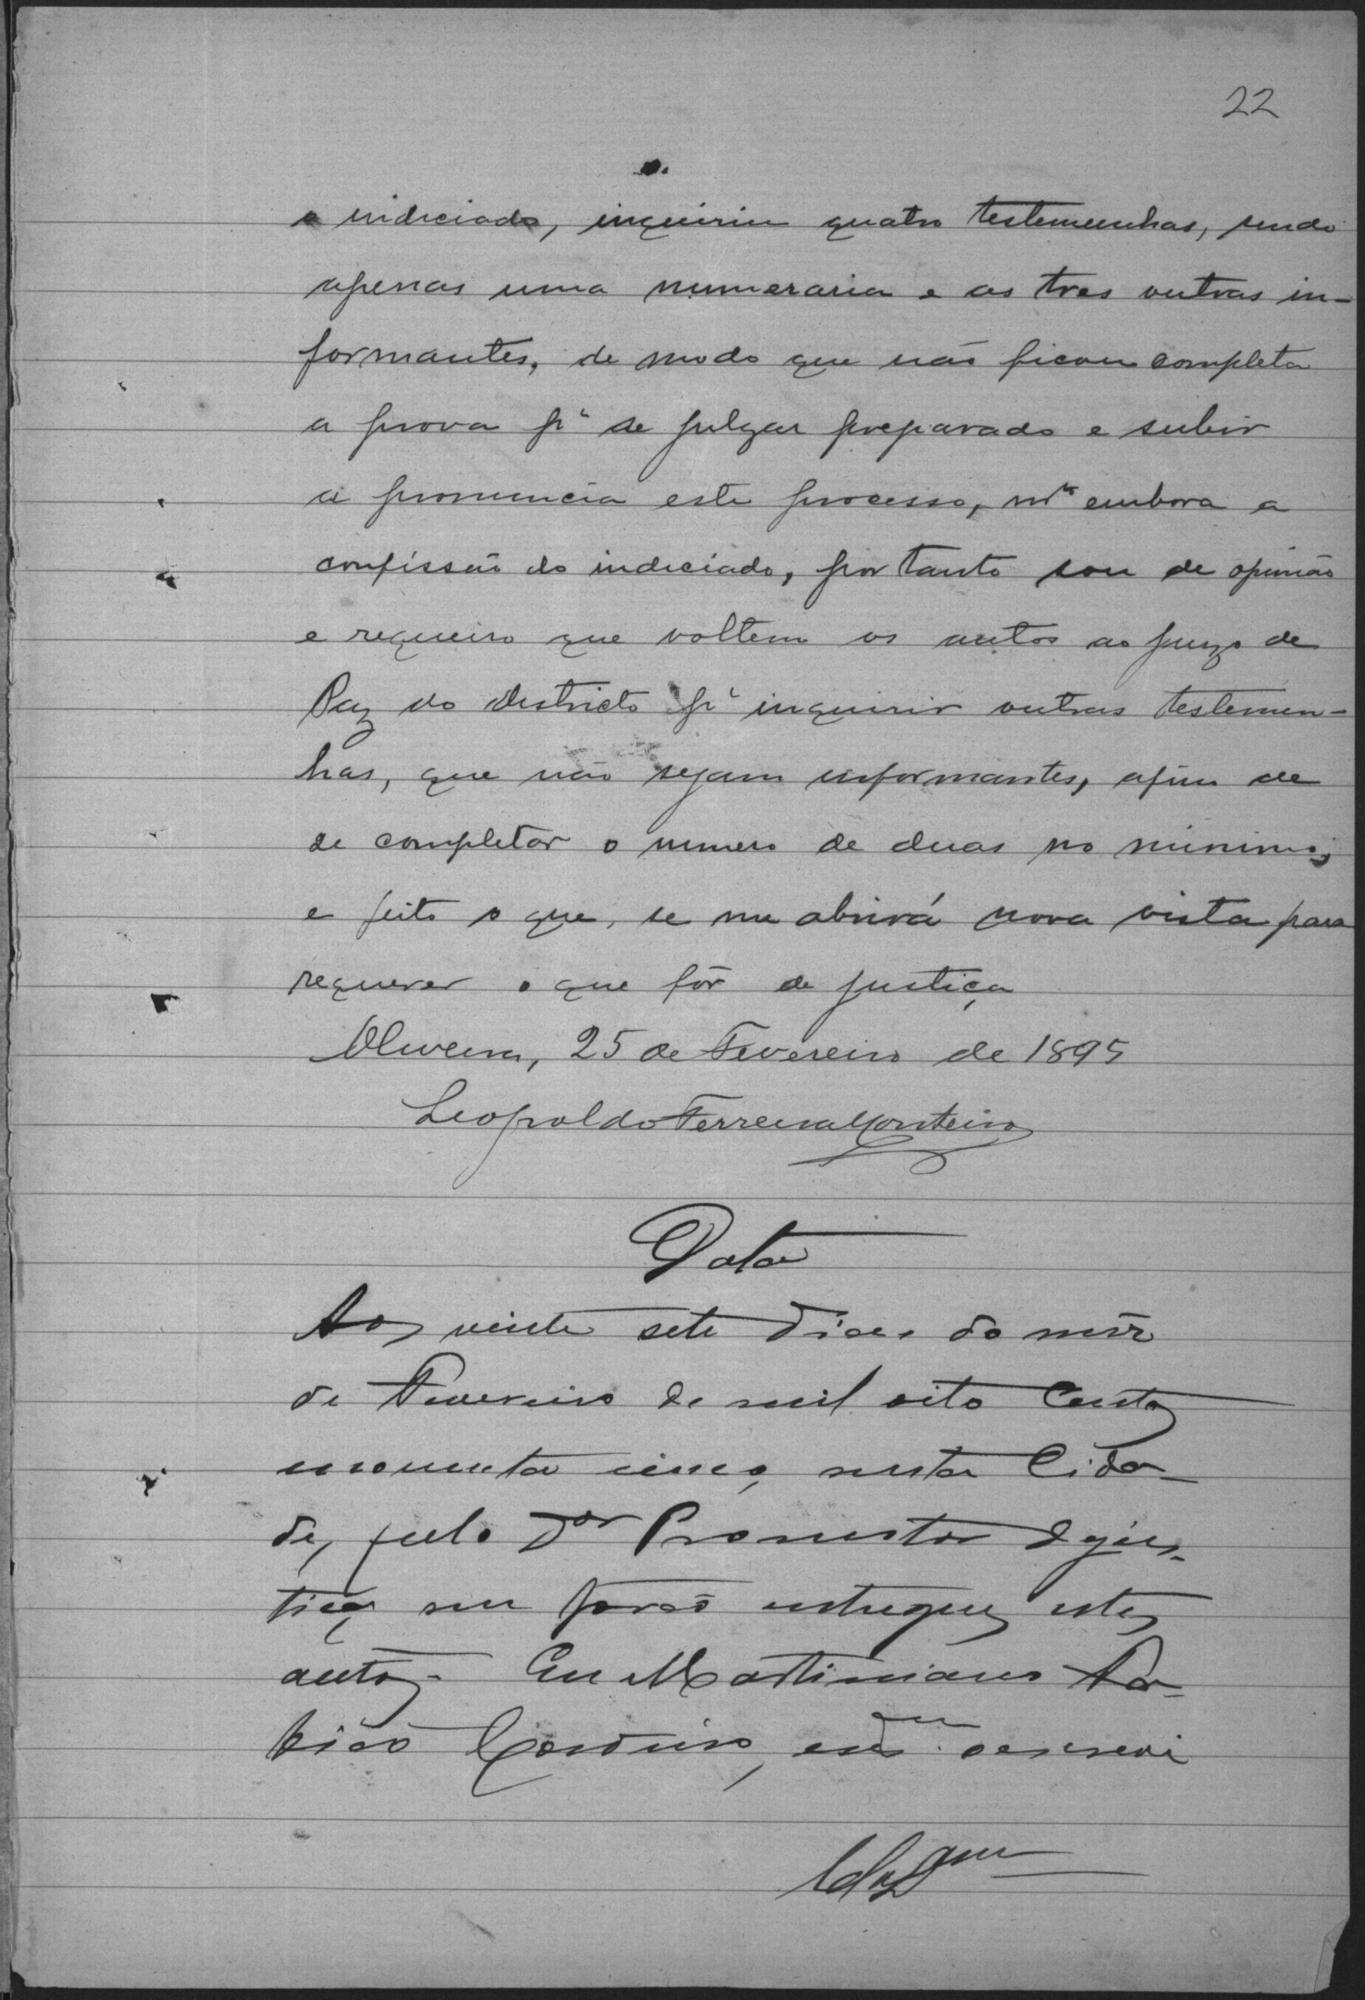 22
o indiciado, inquiriu quatro testemunhas, sendo
apenas uma numeraria e as tres outras in-
formantes, de modo que não ficou completa
a prova pª se julgar preparado e subir
a pronuncia este processo, mto embora a
confissão do indiciado, por tanto sou de opinião
e requeiro que voltem os autos ao juizo de
Paz do districto pª inquirir outras testemu-
has, que não sejam informantes, afim de
se completar o numero de duas no minimo,
e feito o que, se me abrirá nova vista para
requerer o que fôr de justiça
Oliveira, 25 de Fevereiro de 1895
Leopoldo Ferreira Monteiro
Data
Aos vinte sete dias do mez
de Fevereiro de mil oito centos
noventa cinco, nesta Cida-
de, pelo Dor Promotor de jus-
tiça me forão entregues estes
autos. Eu Martiniano
Cordeiro, escrivão que o escrevi